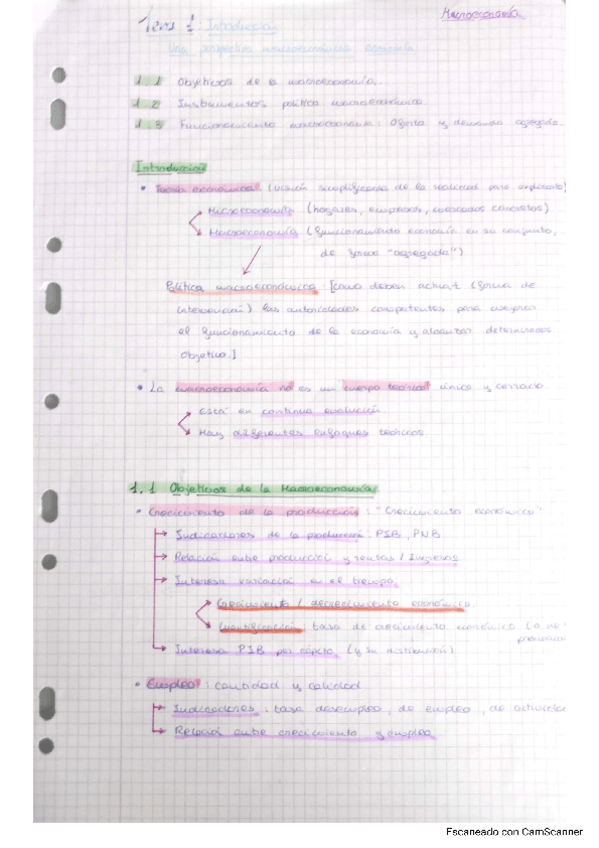 Macroeconomía
Tema 1: Introducción
Una perspectiva macroeconómica economía
1.1 Objetivos de la macroeconomía.
1.2 Instrumentos política macroeconómica.
1.3 Funcionamiento macroeconomía: Oferta y demanda agregada
Introducción
• Teoría económica (visión simplificada de la realidad para explicarla)
Microeconomía (hogares, empresas, mercados concretos)
Macroeconomía (funcionamiento economía en su conjunto,
de forma "agregada")
Política macroeconómica: [como deben actuar (forma de
intervención) las autoridades competentes para mejorar
el funcionamiento de la economía y alcanzar determinados
objetivo.]
• La macroeconomía no es un cuerpo teórico único y cerrado
Está en continua evolución
Hay diferentes enfoques teóricos
1.1 Objetivos de la Macroeconomía
• Crecimiento de la producción: "Crecimiento económico"
Indicadores de la producción: PIB, PNB
Relación entre producción y rentas / Ingresos
Interesa variación en el tiempo
Crecimiento / decrecimiento económico.
Cuantificación: tasa de crecimiento económico (o no
Interesa PIB per cápita (y su distribución)
• Empleo: cantidad y calidad
Indicadores: tasa desempleo, de empleo, de activida
Relación entre crecimiento y empleo
Escaneado con CamScanner